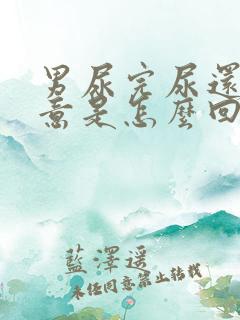 男尿完尿還
意是怎麼回
藍澤遥
未经同意禁止转载